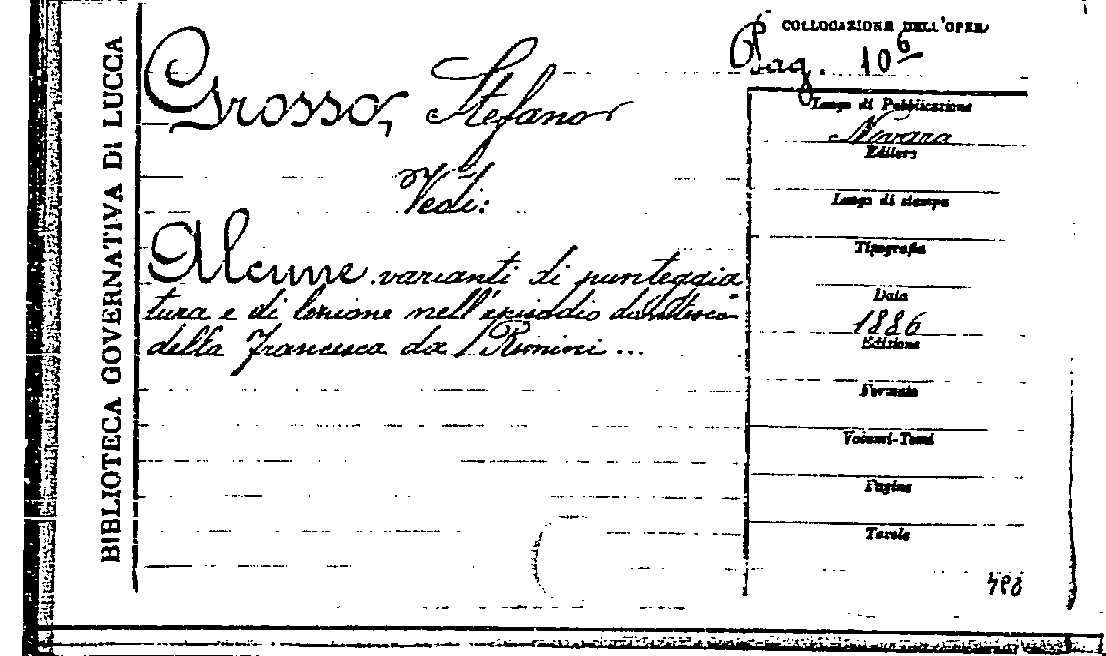 BIBLIOTECA GOVERNATIVA DI LUCCA
COLLOCAZIONE DELL'OPERA
Grosso, Stefano
Vedi:
Alcune varianti di punteggia
tura e di lezione nell'episodio dantesco
della Francesca da Rimini ...
Bag. 10 6
Luogo di Pubblicazione
Novara
Editore
Luogo di stampa
Tipografia
Data
1886
Edizione
Formato
Volumi-Tomi
Pagine
Tavole